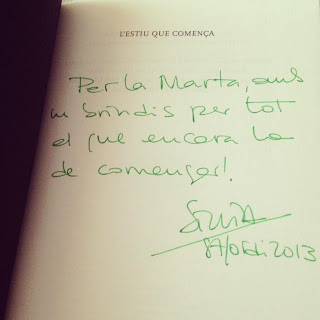 L'ESTIU QUE COMENÇA
Per la Marta, amb
un brindis per tot
el que encara ha
de començar!
Sílvia
2013